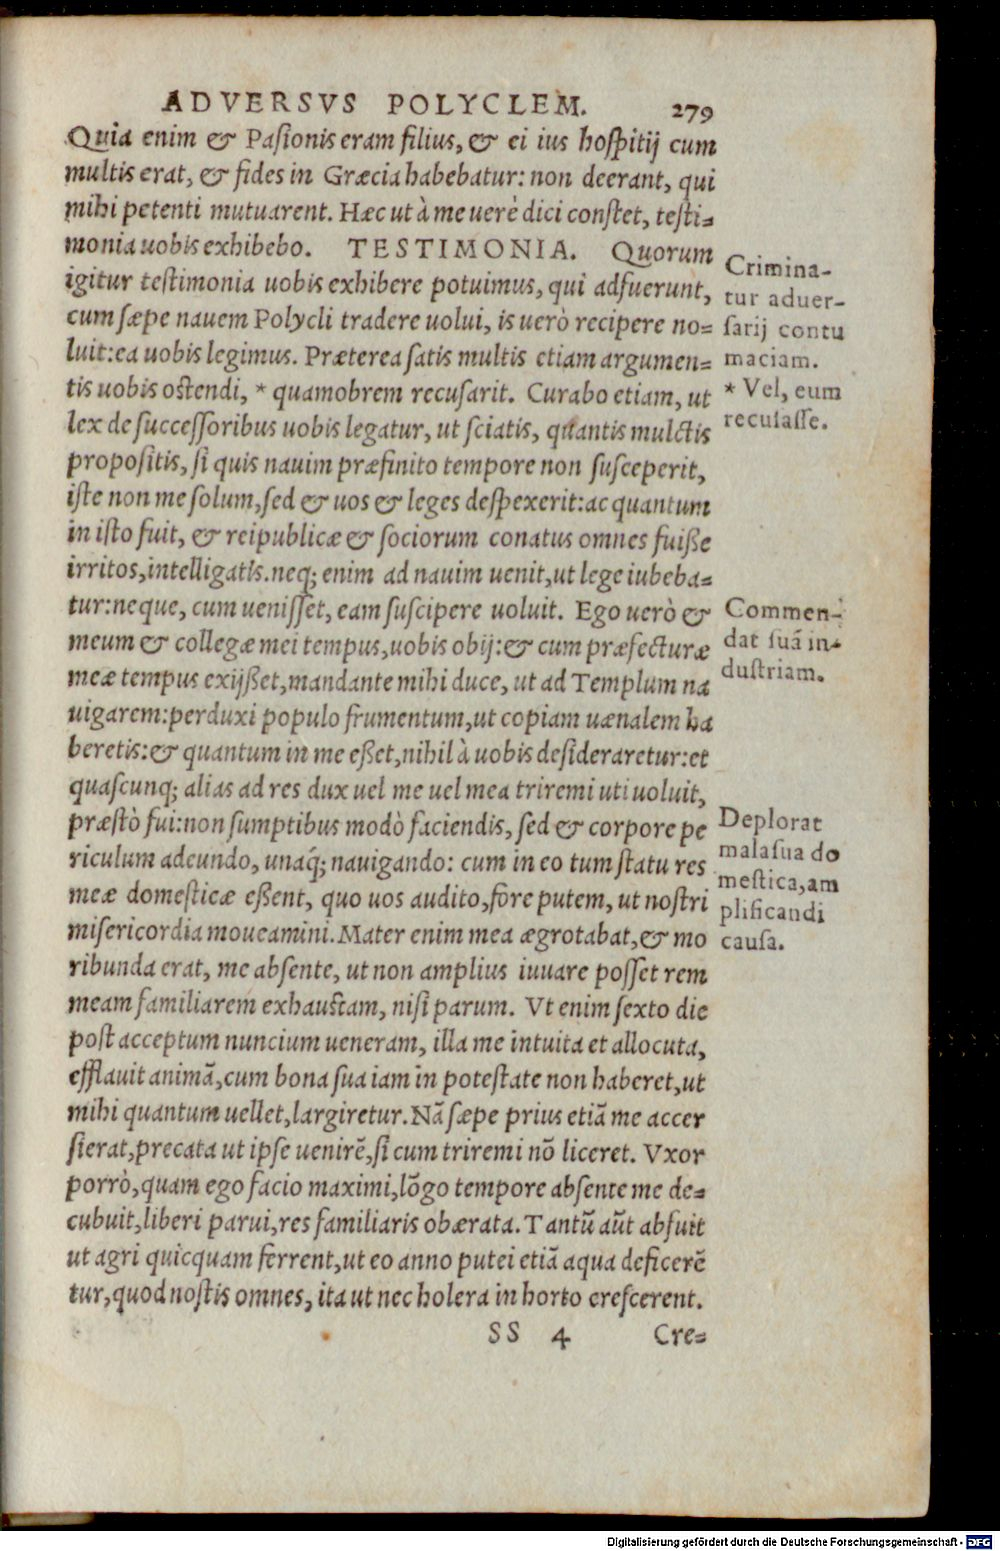 ADVERSVS POLYCLEM. 279
Quia enim & Pasionis eram filius, & ei ius hospitij cum
multis erat, & fides in Græcia habebatur: non deerant, qui
mihi petenti mutuarent. Hæc ut à me uerè dici constet, testi=
monia uobis exhibebo. TESTIMONIA. Quorum
igitur testimonia uobis exhibere potuimus, qui adfuerunt,
cum sæpe nauem Polycli tradere uolui, is uerò recipere no=
luit: ea uobis legimus. Præterea satis multis etiam argumen=
tis uobis ostendi, * quamobrem recusarit. Curabo etiam, ut
lex de successoribus uobis legatur, ut sciatis, quantis mulctis
propositis, si quis nauim præfinito tempore non susceperit,
iste non me solum, sed & uos & leges despexerit: ac quantum
in isto fuit, & reipublicæ & sociorum conatus omnes fuiße
irritos, intelligatis. neq; enim ad nauim uenit, ut lege iubeba=
tur: neque, cum uenisset, eam suscipere uoluit. Ego uerò &
meum & collegæ mei tempus, uobis obij: & cum præfecturæ
meæ tempus exijßet, mandante mihi duce, ut ad Templum na
uigarem: perduxi populo frumentum, ut copiam uænalem ha
beretis: & quantum in me eßet, nihil à uobis desideraretur: et
quascunq; alias ad res dux uel me uel mea triremi uti uoluit,
præstò fui: non sumptibus modò faciendis, sed & corpore pe
riculum adeundo, unaq́; nauigando: cum in eo tum statu res
meæ domesticæ eßent, quo uos audito, fore putem, ut nostri
misericordia moueamini. Mater enim mea ægrotabat, & mo
ribunda erat, me absente, ut non amplius iuuare posset rem
meam familiarem exhaustam, nisi parum. Vt enim sexto die
post acceptum nuncium ueneram, illa me intuita et allocuta,
efflauit animã, cum bona sua iam in potestate non haberet, ut
mihi quantum uellet, largiretur. Nã sæpe prius etiã me accer
sierat, precata ut ipse uenirẽ, si cum triremi nõ liceret. Vxor
porrò, quam ego facio maximi, lõgo tempore absente me de=
cubuit, liberi parui, res familiaris obærata. Tantũ aũt absuit
ut agri quicquam ferrent, ut eo anno putei etiã aqua deficerẽ
tur, quod nostis omnes, ita ut nec holera in horto crescerent.
SS 4 Cre=
Crimina-
tur aduer-
sarij contu
maciam.
* Vel, eum
recusasse.
Commen-
dat suã in-
dustriam.
Deplorat
mala sua do
mestica, am
plificandi
causa.
Digitalisierung gefördert durch die Deutsche Forschungsgemeinschaft - DFG